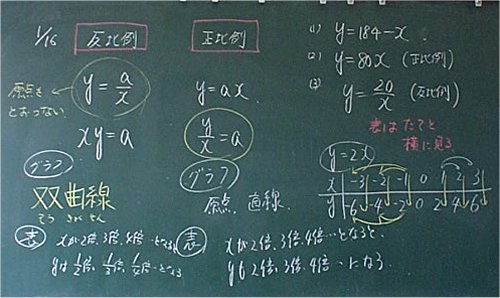 1/16
反比例
原点を
とおらない
y = a/x
xy = a
グラフ
双曲線
そうきょくせん
表 xが2倍、3倍、4倍…となると
yは1/2倍、1/3倍、1/4倍…となる
正比例
y = ax
y/x = a
グラフ
原点、直線
表 xが2倍、3倍、4倍…となると、
yも2倍、3倍、4倍…になる
(1) y = 184 - x
(2) y = 80x (正比例)
(3) y = 20/x (反比例)
表はたてと
横に見る
y = 2x
x -3 -2 -1 0 1 2 3
y -6 -4 -2 0 2 4 6